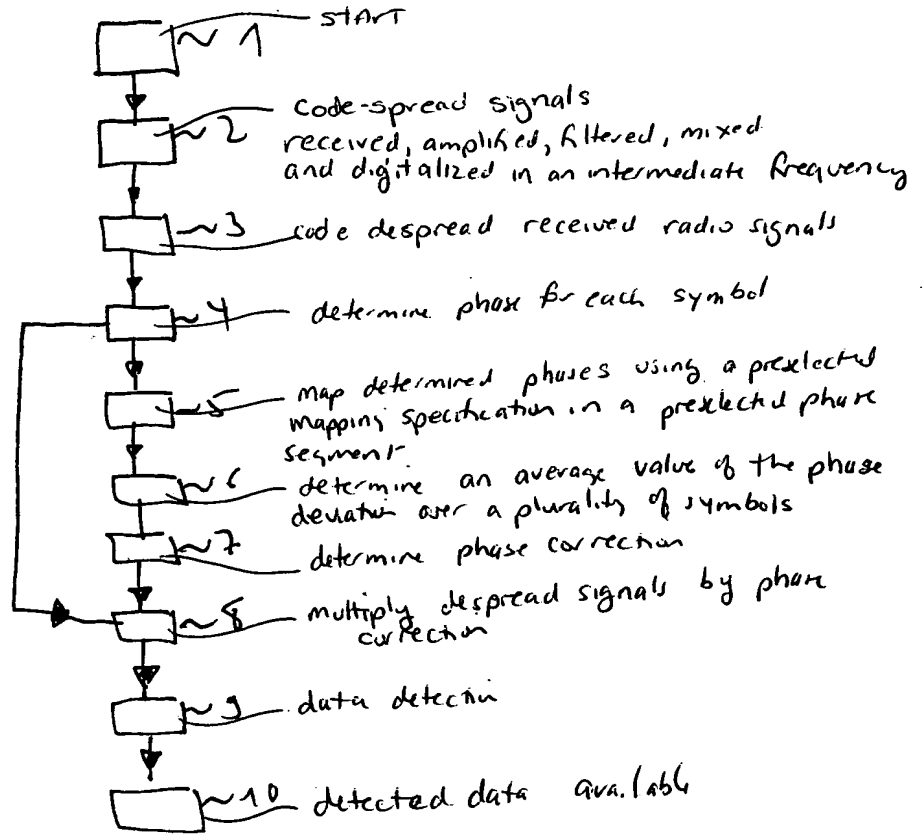 START
~ 1
code-spread signals
~ 2
received, amplified, filtered, mixed
and digitalized in an intermediate frequency
~ 3
code despread received radio signals
~ 4
determine phase for each symbol
~ 5
map determined phases using a preselected
mapping specification in a preselected phase
segment
~ 6
determine an average value of the phase
deviation over a plurality of symbols
~ 7
determine phase correction
~ 8
multiply despread signals by phase
correction
~ 9
data detection
~ 10
detected data available